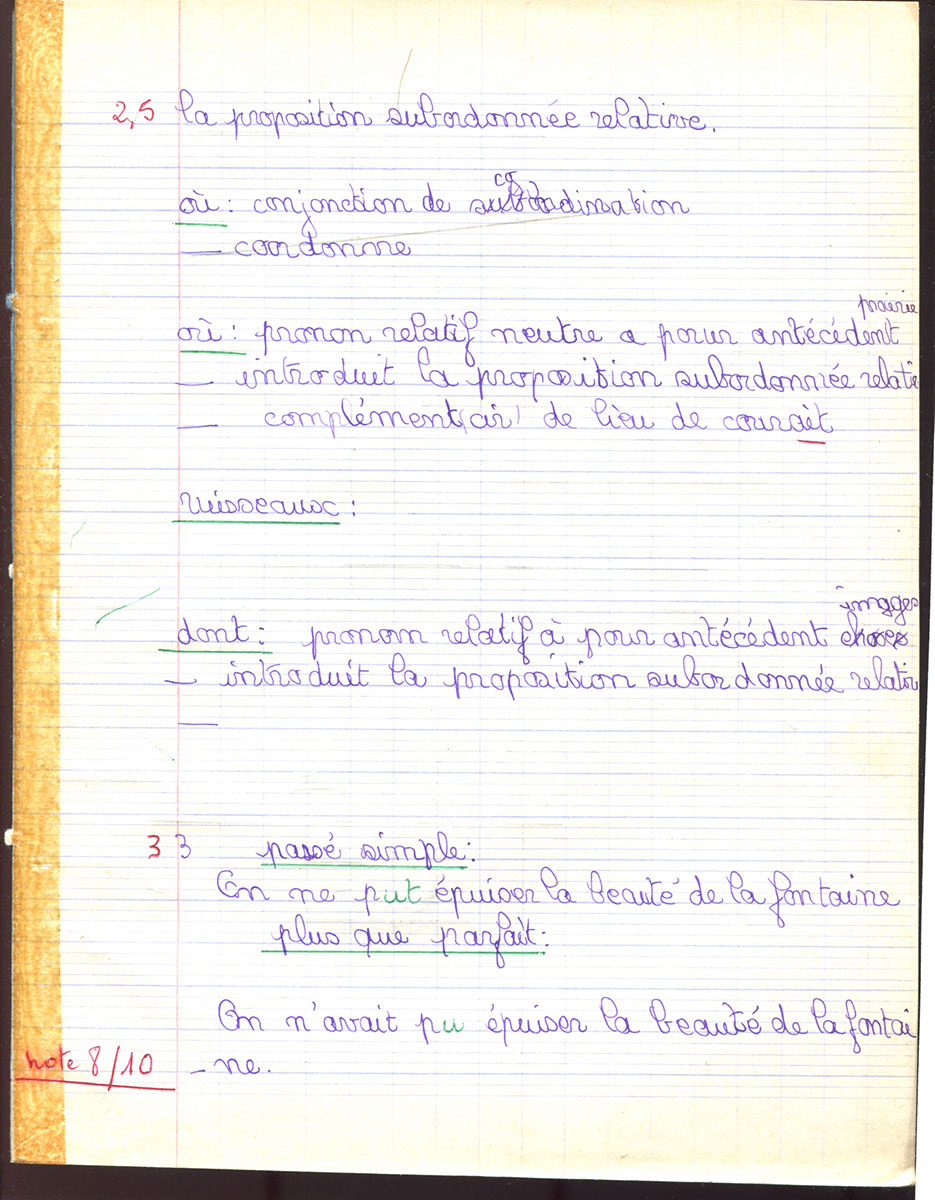 2,5 la proposition subordonnée relative.
où : conjonction de coordination
— coordonne
prairie
où : pronon relatif neutre a pour antécédent
— introduit la proposition subordonnée relati
— complément (cir) de lieu de courait
ruisseaux :
images
dont : pronom relatif à pour antécédent choses
— introduit la proposition subordonnée relativ
—
3 3 passé simple :
On ne put épuiser la beauté de la fontaine
plus que parfait :
On n'avait pu épuiser la beauté de la fontai
note 8/10 - ne.